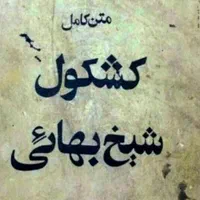 متن کامل
کشکول
شیخ بهائی